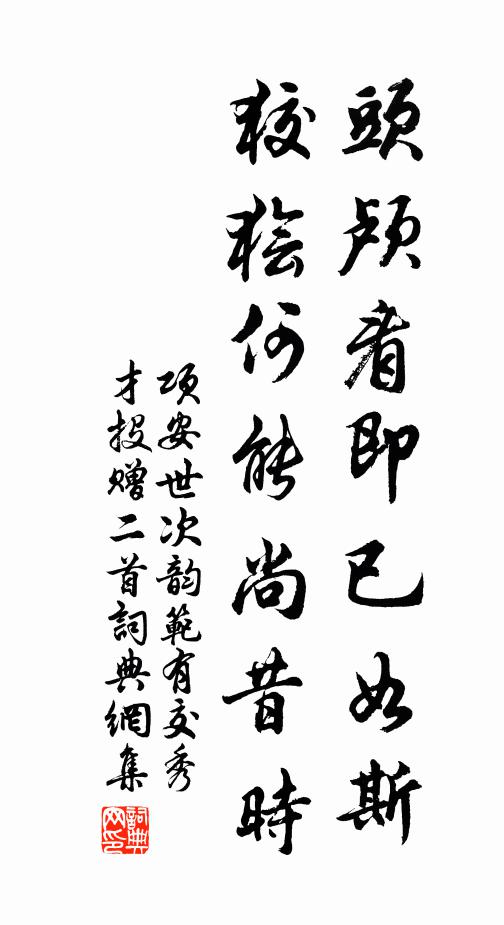 頭颅看即已如斯
狡獪何能尚昔時
項安世次韵範有交秀
才投贈二首詞典網集
詞典网印